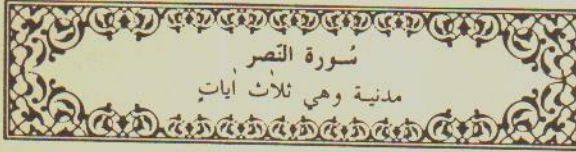 سُورة النَصر
مدنية وهي ثلاث اٰياتٍ